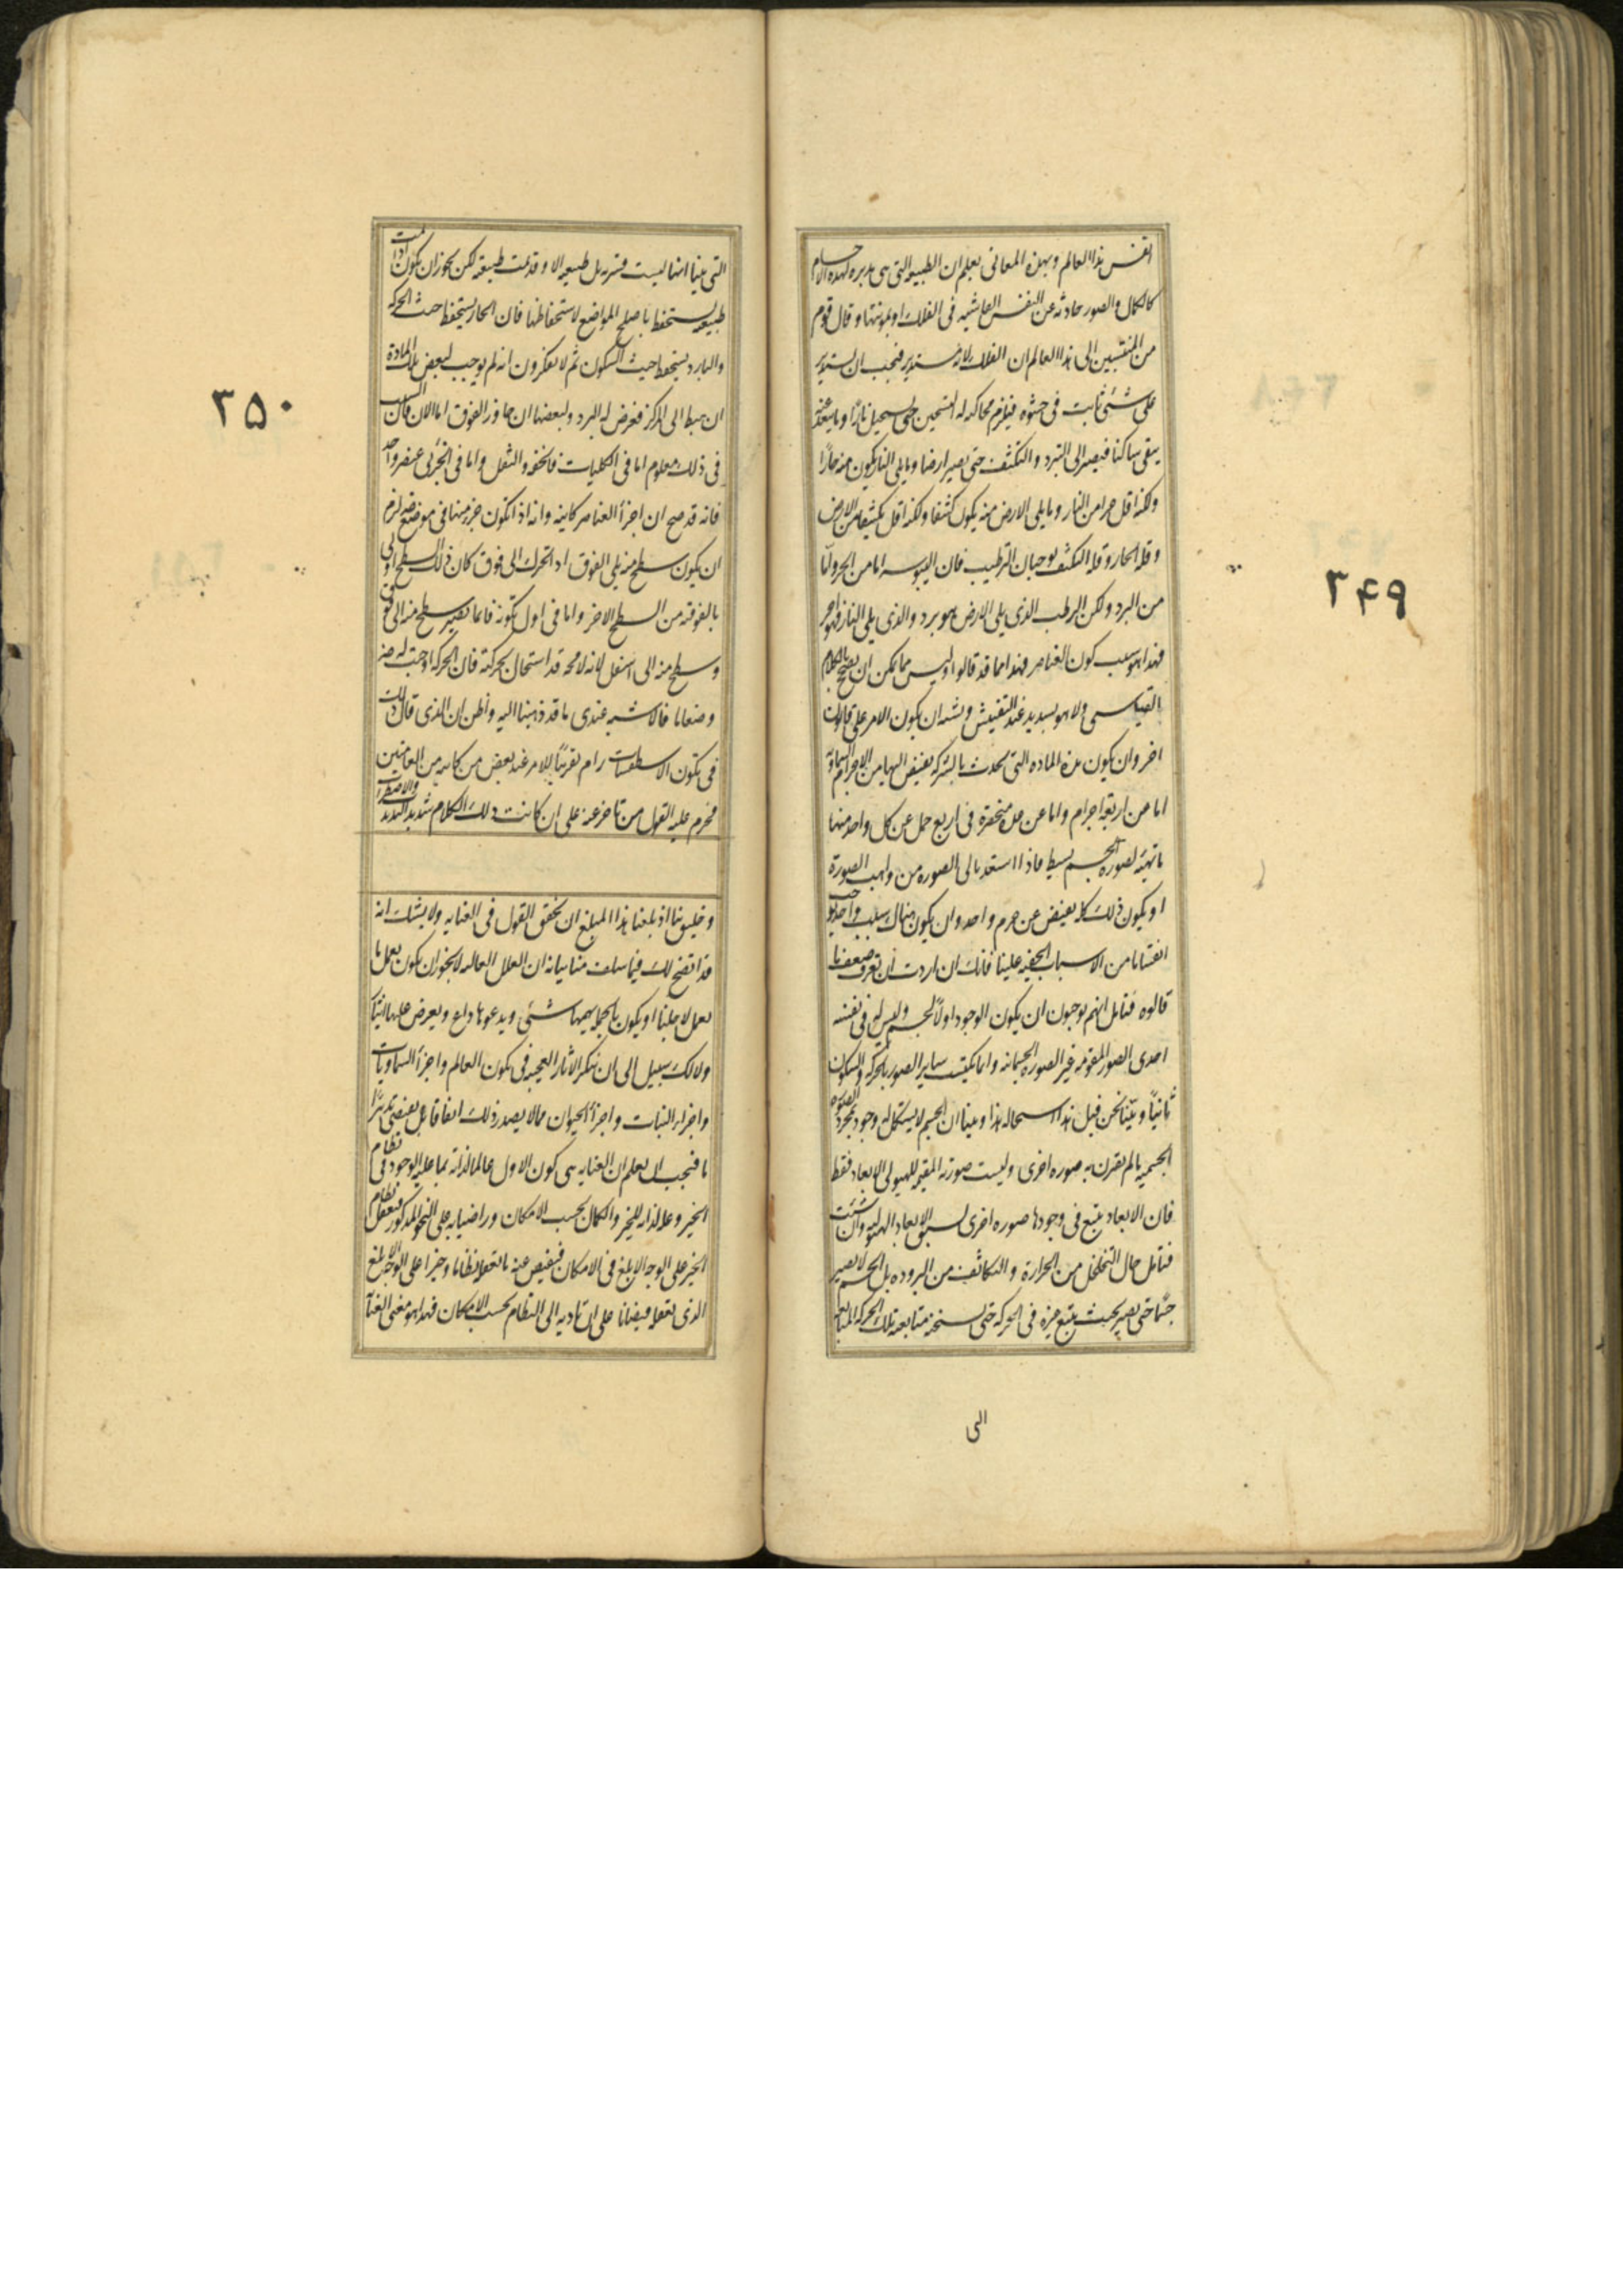 انفس هذا العالم وبهذه المعانى يعلم ان الطبيعة التى هى مدبرة لهذه الاجسام
كالكمال والصور حادثه عن النفس الفاشيه فى الفلك او بمعونتها وقال قوم
من المنتسبين الى هذا العالم ان الفلك لانه مستدير فيجب ان يستدير
على شئ ثابت فى حشوه فيلزم محاكته له التسخين حتى يستحيل نارًا وما يبعد عنه
يبقى ساكنا فيصير الى التبرد والتكثف حتى يصير ارضا وما يلى النار يكون منه حارًا
ولكنه اقل حرا من النار وما يلى الارض منه يكون كثيفا ولكنه اقل تكثيفا من الارض
وقلة الحار وقلة التكثف يوجبان الترطيب فان اليبوسه اما من الحر واما
من البرد ولكن الرطب الذى يلى الارض هو برد والذى يلى النار فهو احر
فهذا هو سبب كون العناصر فهذا مما قد قالوا وليس مما يمكن ان يصح بالكلام
القياسى ولا هو بسديد عند التفتيش ويشبه ان يكون الامر على قانون
اخر وان يكون هذه الماده التى تحدث بالشركه يفيض اليها من الاجرام السماوية
اما من اربعة اجرام واما عن عدة منحصرة فى اربع جمل عن كل واحد منها
ما تهيئه لصورة جسم بسيط فاذا استعد نال الصوره من واهب الصورة
او يكون ذلك كله يفيض عن جرم واحد وان يكون هناك سبب واحد يوجب
انقسامًا من الاسباب الخفيه علينا فانك ان اردت ان تعرف ضعف ما
قالوه فتأمل انهم يوجبون ان يكون الوجود اولاً لجسم وليس له فى نفسه
احدى الصور المقومه غير الصورة الجسمانيه وانما يكتسب ساير الصور بالحركه والسكون
ثانيًا وبيّنا نحن قبل هذا استحاله هذا وبينا ان الجسم لا يستكمل له وجود بمجرد الصوره
الجسميه ما لم يقرن به صوره اخرى وليست صورته المقيمه للهيولى الابعاد فقط
فان الابعاد يتبع فى وجودها صوره اخرى يسبق الابعاد الهيولى وان شئت
فتأمل حال التخلخل من الحرارة والتكاثف من البروده بل الجسم لا يصير
جسمًا حتى يصير بحيث يتبع غيره فى الحركه حتى يسخنه متابعته تلك الحركه المتابعه
الى
٣٤٩
التى بينا انها ليست قسريه بل طبيعيه الا وقد تمت طبيعته لكن يجوز ان يكون اذا تمت
طبيعته يستحفظ باصلح المواضع لاستحفاظها فان الحار يستحفظ حيث الحركه
والبارد يستحفظ حيث السكون ثم لا يفكرون انه لم يوجب لبعض تلك المادة
ان هبط الى المركز فعرض له البرد ولبعضها ان جاور الفوق اما الان فان السبب
فى ذلك معلوم اما فى الكليات فالخفه والثقل واما فى الجزئى عنصر واحد
فانه قد صح ان اجزأ العناصر كاينه وانه اذا تكون جزء منها فى موضع ضرورة لزم
ان يكون سطح منه يلى الفوق اذ التحرك الى فوق كان ذلك السطح اولى
بالفوقيه من السطح الاخر واما فى اول تكونه فانما يصير سطح منه الى فوق
وسطح منه الى اسفل لانه لا محه قد استحال بحركته فان الحركه اوجبت له ضرورة
وضعا ما فالاشبه عندى ما قد ذهبنا اليه واظن ان الذى قال ذلك
فى تكون الاسطقسات رام تقريبًا للامر عند بعض من كاتبه من العاميين
فحزم عليه القول من تاخر عنه على ان كاتب ذلك الكلام شديد التذبذب والاضطراب
وخليق بنا اذ بلغنا هذا المبلغ ان نحقق القول فى العنايه ولا يشك انه
قد اتضح لك فيما سلف منا بيانه ان العلل العاليه لا يجوز ان يكون يعمل ما
يعمل لاجلنا او يكون بالجمله يهمها شئ ويدعوها داع ويعرض عليها ايثار
ولا لك سبيل الى ان تنكر الاثار العجيبه فى تكون العالم واجزأ السماويات
واجزاء النبات واجزأ الحيوان مما لا يصدر ذلك اتفاقا بل يقتضى تدبيرًا
ما فيجب ان يعلم ان العنايه هى كون الاول عالما لذاته بما عليه الوجود فى نظام
الخير وعلة لذاته للخير والكمال بحسب الامكان وراضيا به على النحو المذكور فيعقل نظام
الخير على الوجه الابلغ فى الامكان فيفيض عنه ما يعقله نظاما وخيرا على الوجه الابلغ
الذى يعقله فيضانا على ان تاديه الى النظام بحسب الامكان فهذا هو معنى العناية
٣٥٠